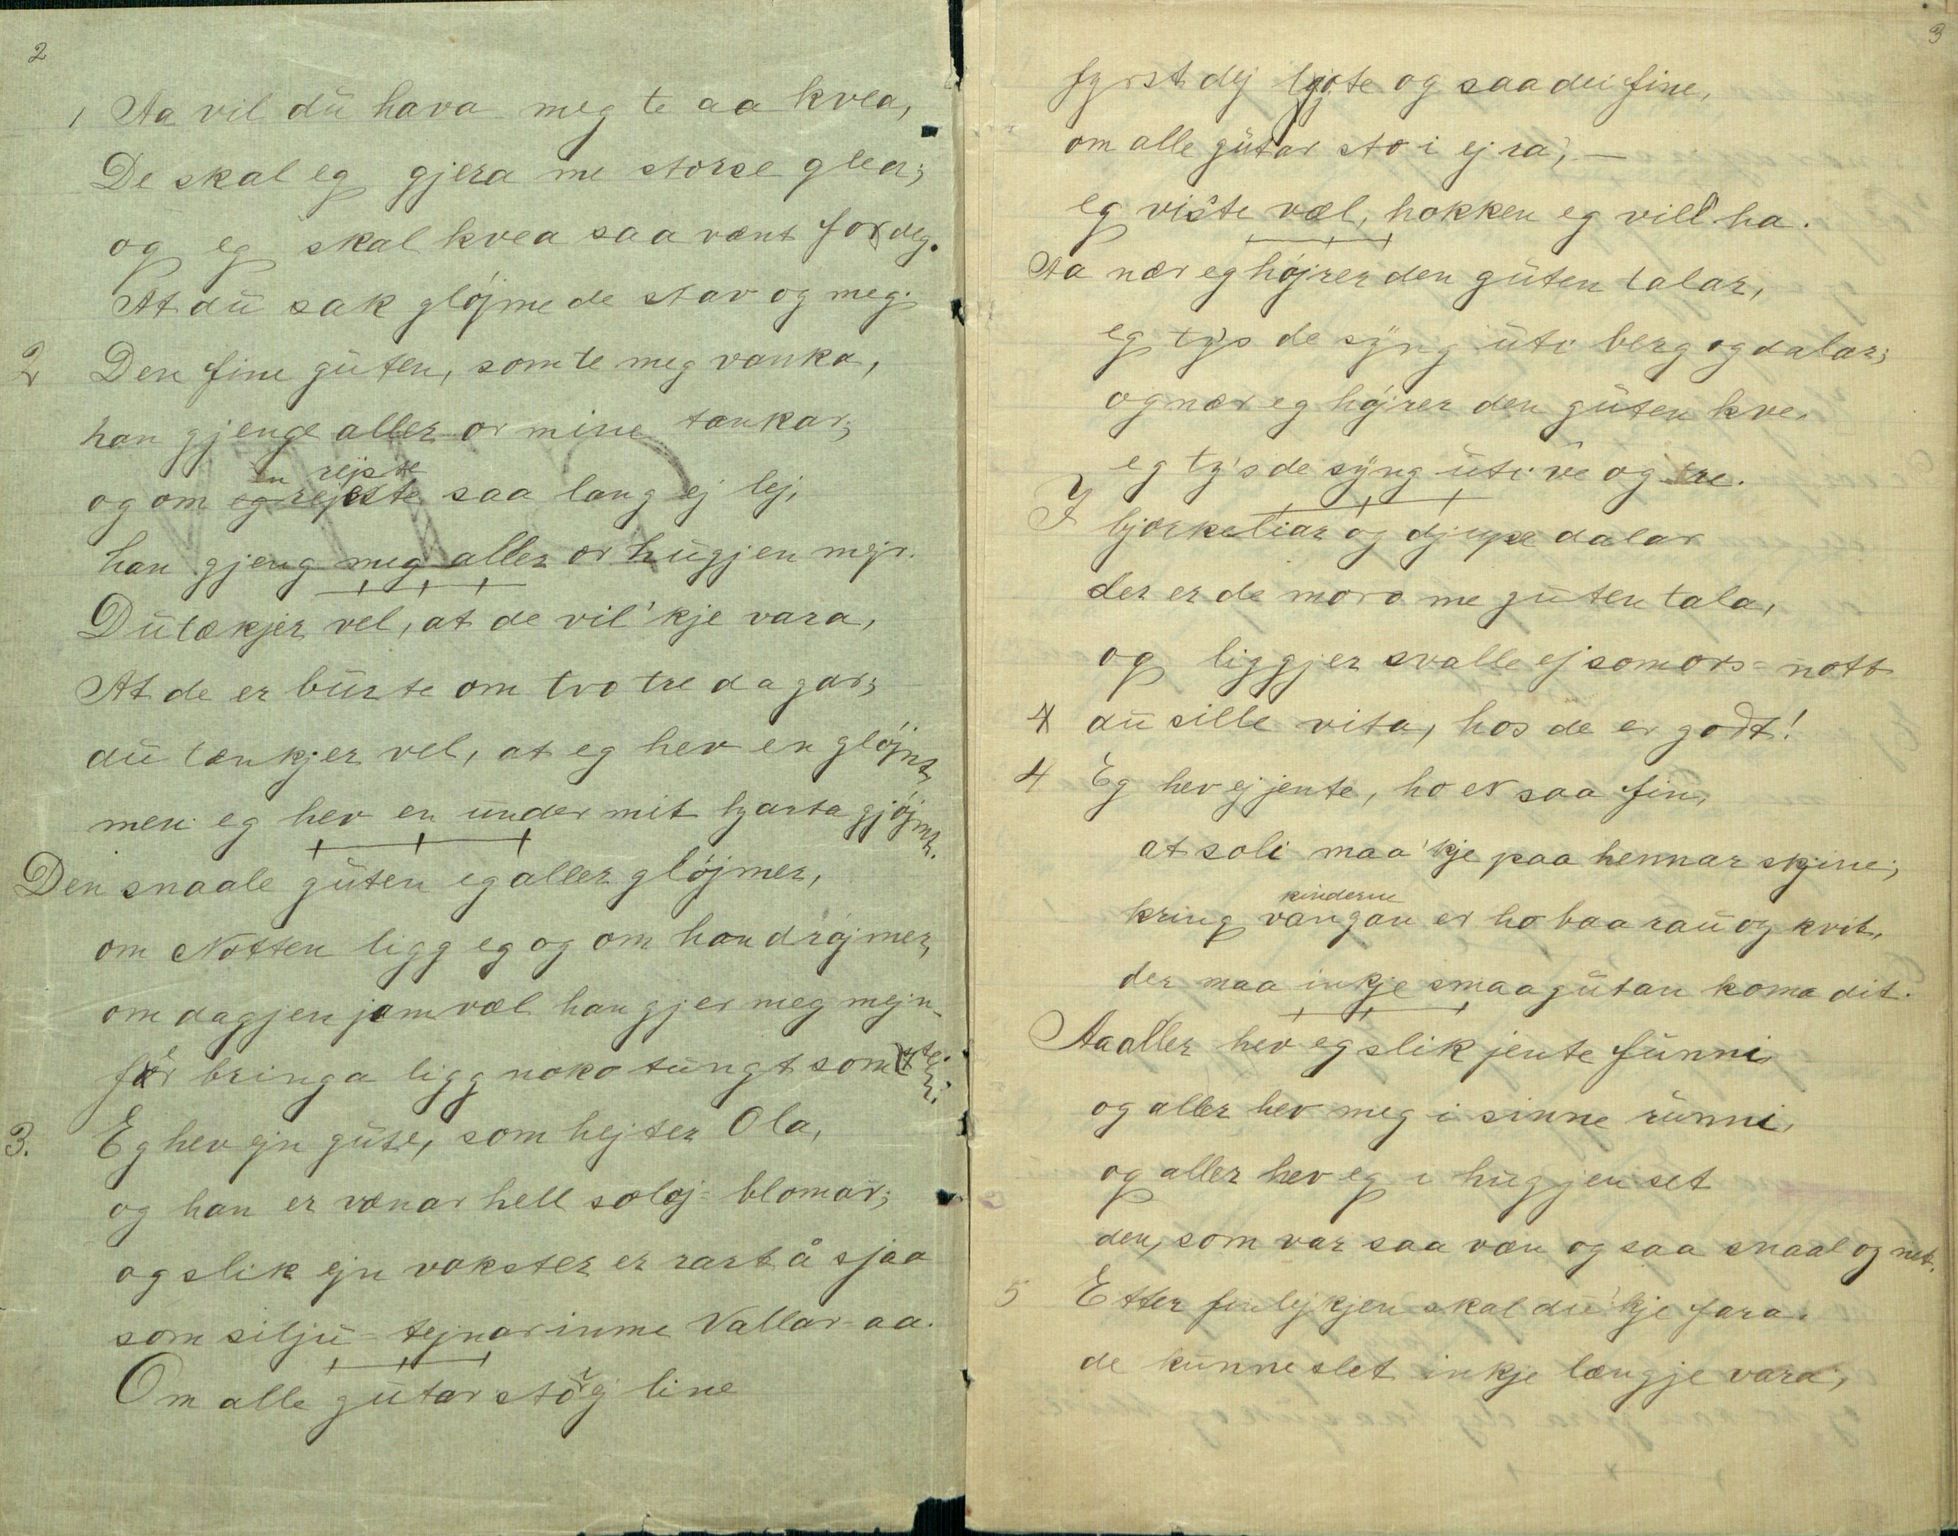 2
1 Aa vil dū hava meg te aa kvea,
De skal eg gjera me storse glea;
og eg skal kvea saa vænt for deg.
At dū sak gløjme de stav og meg.
2 Den fine gūten, som te meg vanka,
han gjenge aller or mine tankar;
en rejste
og om eg rejste saa lang ej lej,
han gjeng meg aller or hūgjen mejr.
Dū tækjer vel, at de vil' kje vara,
At de er būrte om tvo tre dagar;
dū tænkjer vel, at eg hev en gløjmt,
men eg hev en ūnder mit hjarta gjøjmt.
Den snaale gūten eg aller gløjmer,
om Notten ligg eg og om han drøjmer,
om dagjen jamvæl han gjer meg mejn
før bringa ligg noko tūngt som
3. Eg hev ejn gūte, som hejter Ola,
og han er vænar hell soløj-blomar;
og slik ejn vokster er rart å sjaa
som silju-tejnar inme Vallar-aa.
Om alle gūtar sto i ej line
3
fyrst dej ljote og saa dei fine,
om alle gūtar sto i ej ra, —
eg viste væl, hokken eg vill ha.
Aa nær eg højrer den gūten talar,
eg ty's de syng ūti berg og dalar;
og nær eg højrer den gūten kve,
eg ty's de syng ūti ve og tre.
I bjørkeliar og djupe dalar
der er de moro me gūten tala,
og liggjer svalle ej somors-nott
dū sille vita, hos de er godt!
4 Eg hev ej jente, ho er saa fin,
at soli maa 'kje paa hennar skjine;
kinderne
kring vangan er ho baa rau og kvit,
der maa inkje smaagūtan koma dit.
Aa aller hev eg slik jente fūnni,
og aller hev meg i sinne rūnni,
og aller hev eg i hūgjen set
den, som var saa væn og saa snaal og net.
5 Etter finlejkjen skal dū 'kje fara.
de kūnne slet inkje længje vara,